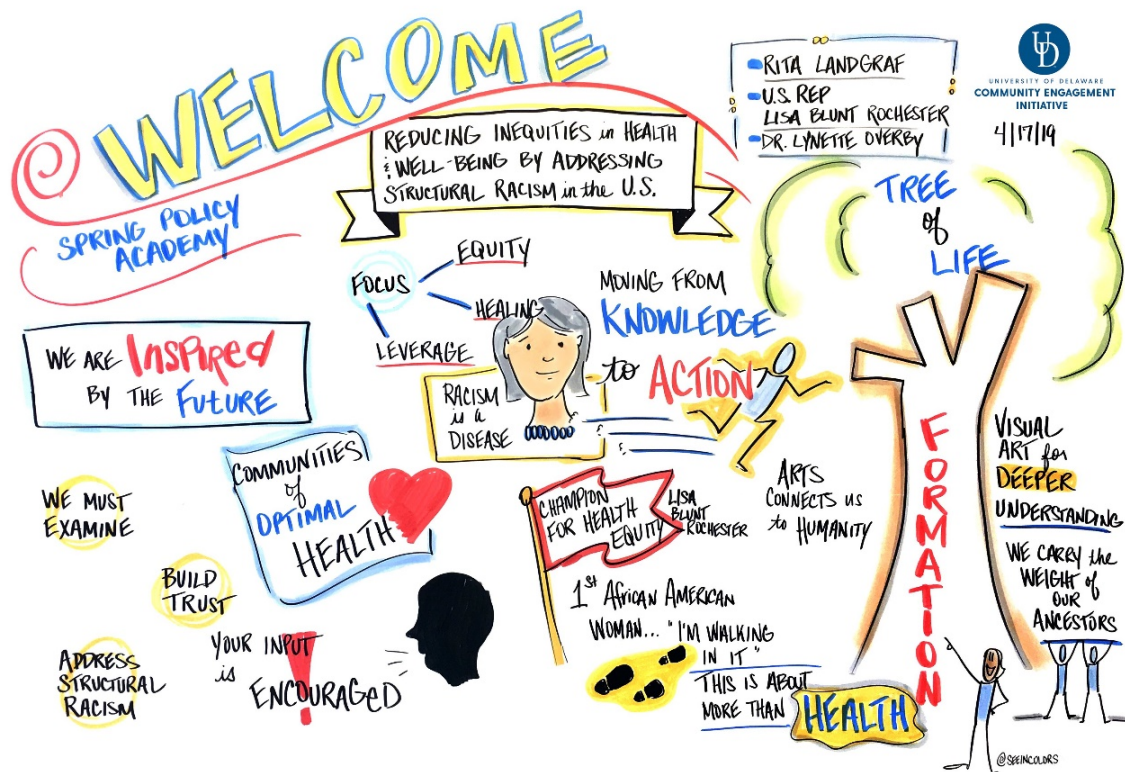 WELCOME
SPRING POLICY
ACADEMY
REDUCING INEQUITIES in HEALTH
& WELL-BEING BY ADDRESSING
STRUCTURAL RACISM in the U.S.
RITA LANDGRAF
U.S. REP
LISA BLUNT ROCHESTER
DR. LYNETTE OVERBY
UD
UNIVERSITY OF DELAWARE
COMMUNITY ENGAGEMENT
INITIATIVE
4/17/19
FOCUS
EQUITY
HEALING
LEVERAGE
RACISM
is a
DISEASE
MOVING FROM
KNOWLEDGE
to ACTION
TREE
of
LIFE
FORMATION
WE ARE INSPIRED
BY THE FUTURE
COMMUNITIES
of
OPTIMAL
HEALTH
WE MUST
EXAMINE
BUILD
TRUST
ADDRESS
STRUCTURAL
RACISM
YOUR INPUT
is
ENCOURAGED
!
CHAMPION
FOR HEALTH
EQUITY
LISA
BLUNT
ROCHESTER
1ST AFRICAN AMERICAN
WOMAN... "I'M WALKING
IN IT"
THIS IS ABOUT
MORE THAN HEALTH
ARTS
CONNECTS US
to HUMANITY
VISUAL
ART for
DEEPER
UNDERSTANDING
WE CARRY the
WEIGHT of
OUR
ANCESTORS
@SEEINCOLORS